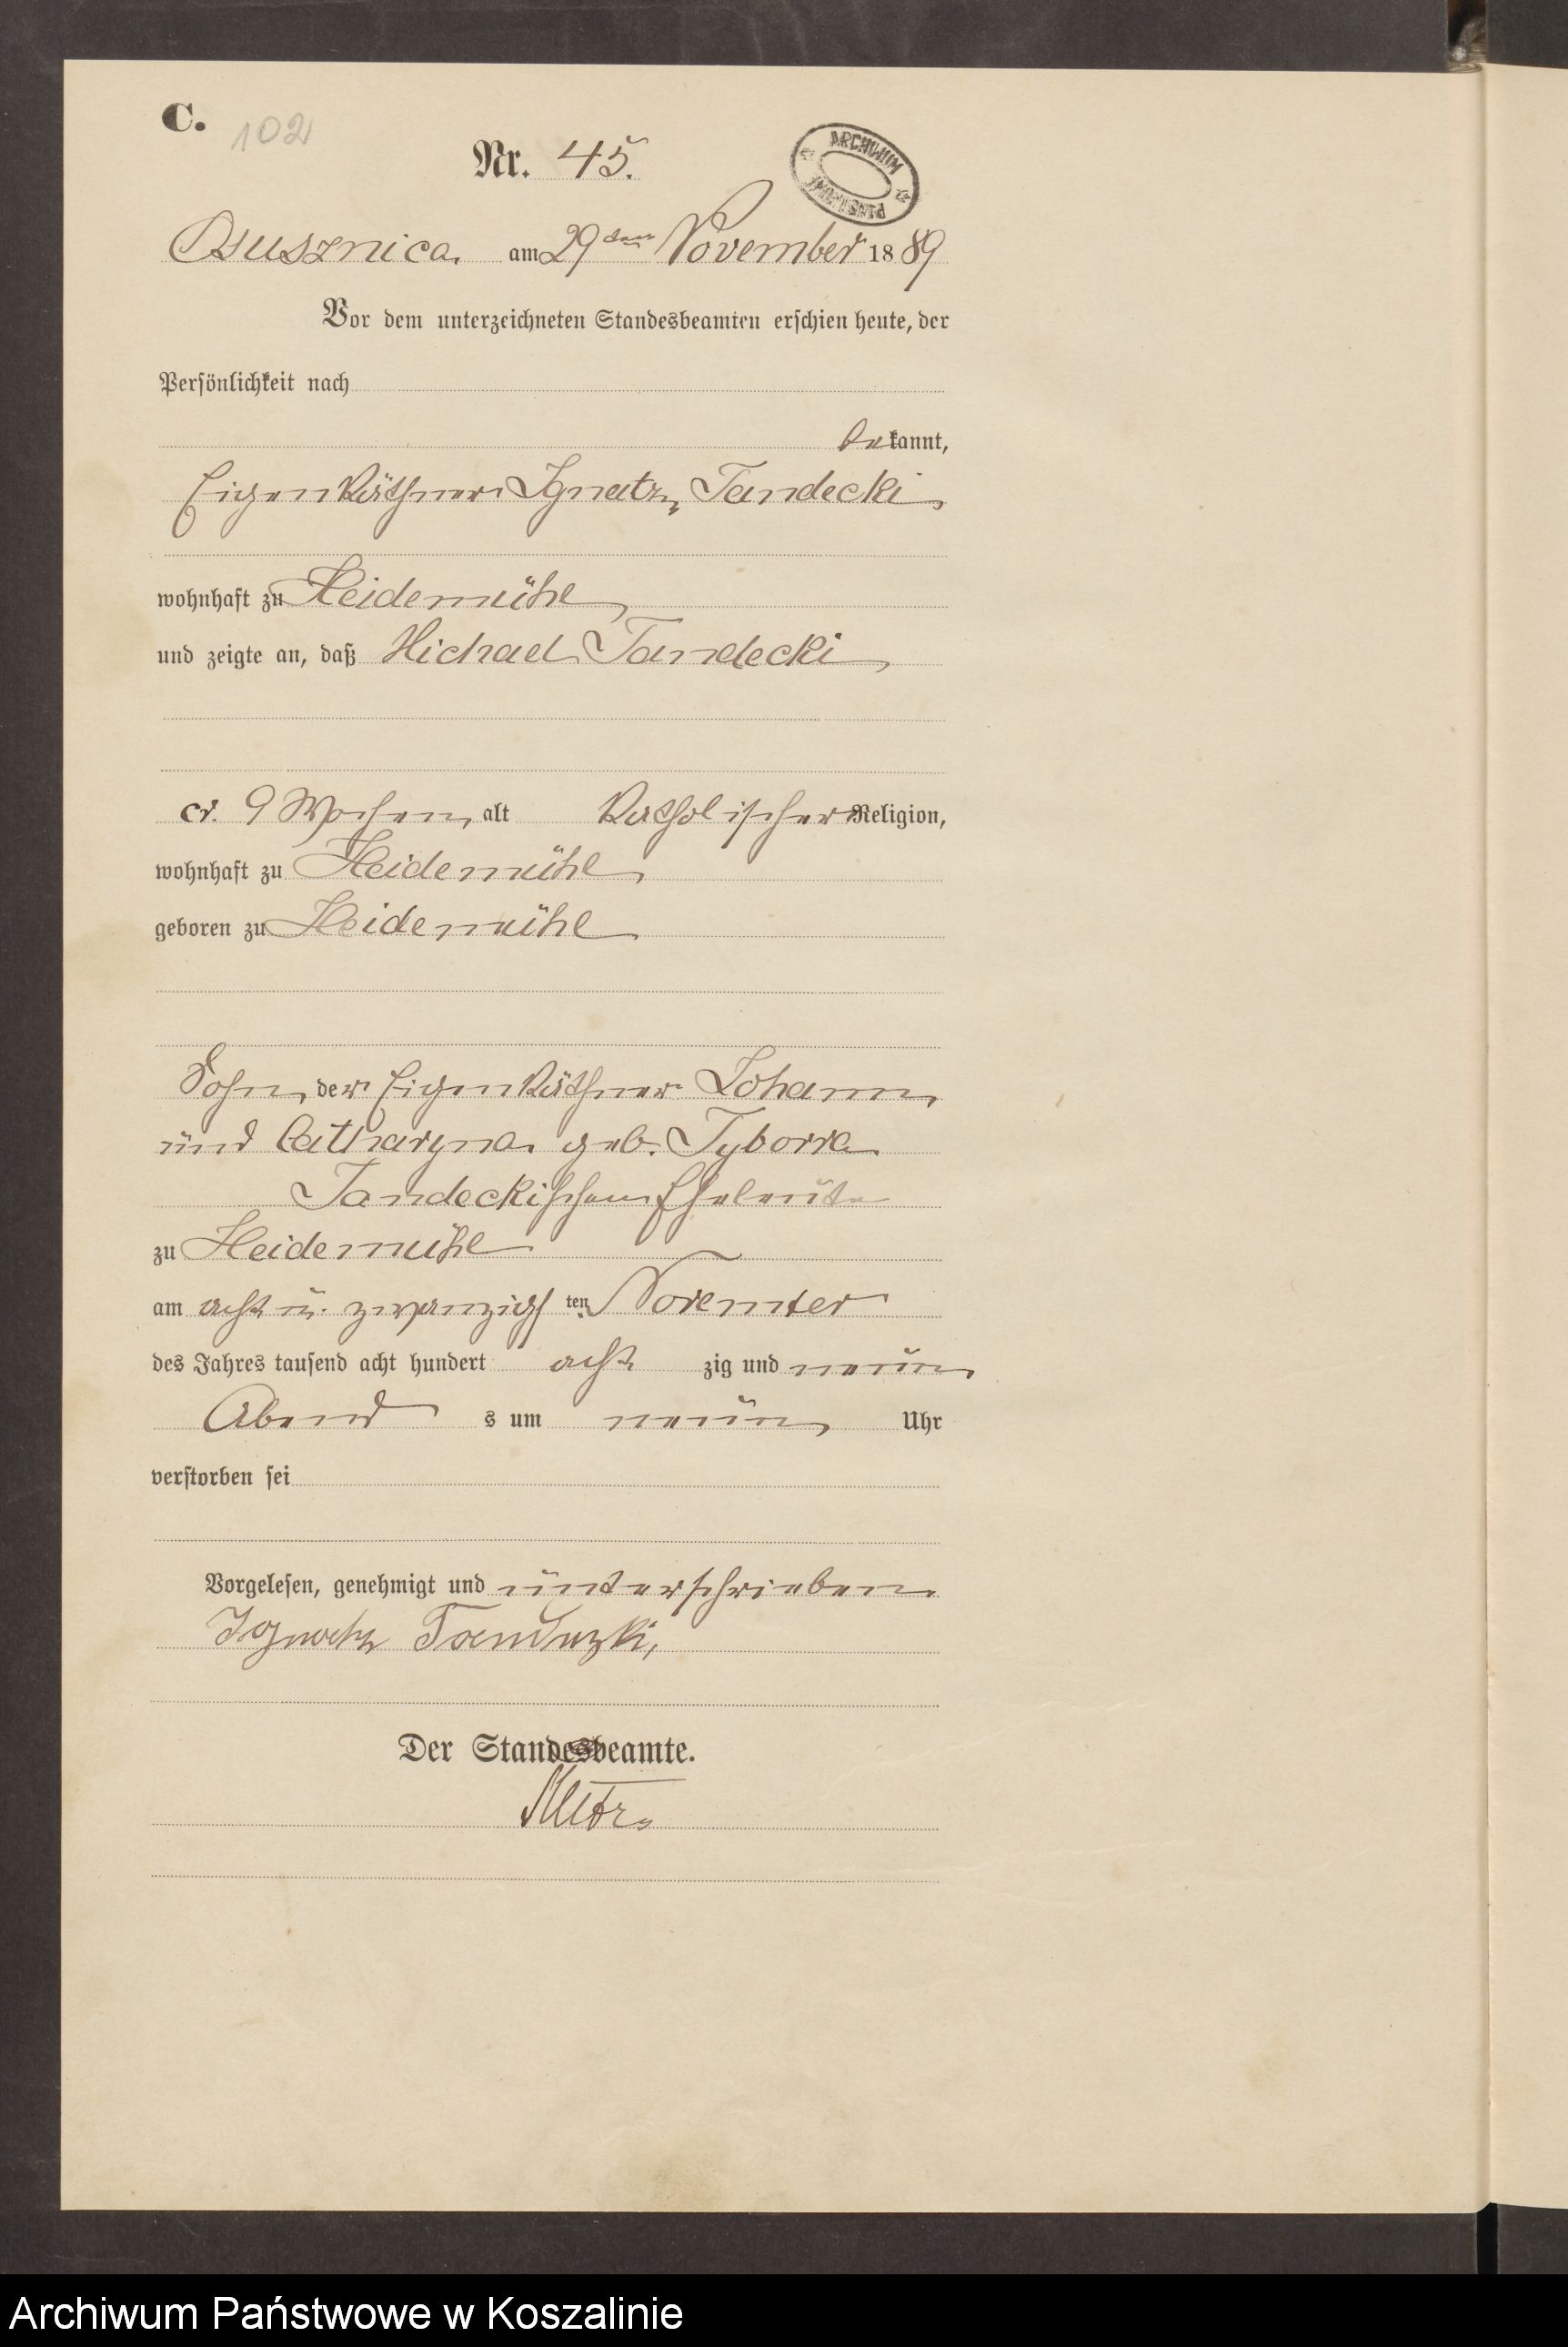 C. 102
Nr. 45.
ARCHIWUM PAŃSTWOWE
Osusznica am 29ten November 1889
Vor dem unterzeichneten Standesbeamten erschien heute, der
Persönlichkeit nach
bekannt,
Eigenkäthner Ignatz Tandecki
wohnhaft zu Heidemühl
und zeigte an, daß Michael Tandecki
cr. 9 Wochen alt Katholischer Religion,
wohnhaft zu Heidemühl
geboren zu Heidemühl
Sohn der Eigenkäthner Johann
und Catharyna geb. Tyborra
Tandeckischen Eheleute
zu Heidemühl
am acht u. zwanzigsten November
des Jahres tausend acht hundert acht zig und neun
Abend s um neun Uhr
verstorben sei
Vorgelesen, genehmigt und unterschrieben
Ignatz Tandezki
Der Standesbeamte.
Archiwum Państwowe w Koszalinie